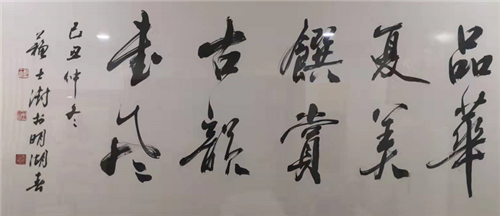 品華
夏美
饌賞
古韻
書风
己丑仲冬
蘇士澍於明湖春